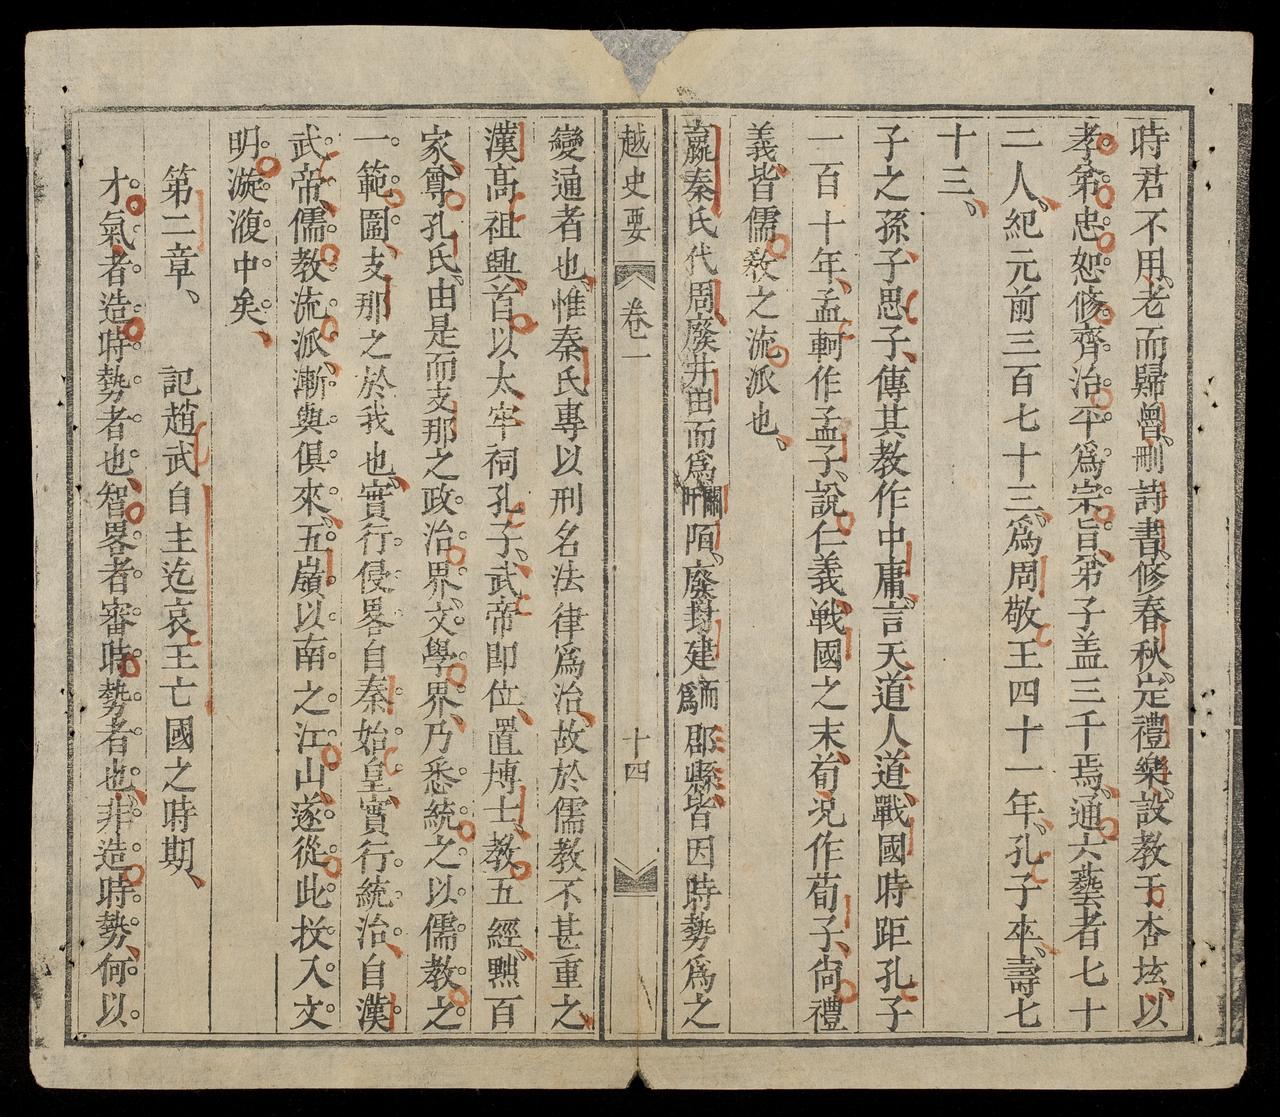 時君不用、老而歸魯、刪詩書、修春秋、㝎禮樂、設教于杏坛、以
孝弟忠恕修齊治平爲宗旨、弟子盖三千焉、通六藝者七十
二人、紀元前三百七十三、爲周敬王四十一年、孔子卒、壽七
十三、
子之孫子思子、傳其教作中庸、言天道人道、戰國時距孔子
一百十年、孟軻作孟子、說仁義、戰國之末、荀况作荀子、尙禮
義、皆儒教之流派也、
嬴秦氏代周廢井田而爲開阡陌、廢封建而爲郡縣、皆因時勢爲之
越史要 卷一 十四
變通者也、惟秦氏專以刑名法律爲治、故於儒教不甚重之、
漢高祖興、首以太牢祠孔子、武帝即位、置博士、教五經、黜百
家、尊孔氏、由是而支那之政治界、文學界、乃悉統之以儒教之
一範圍、支那之於我也、實行侵畧自秦始皇、實行統治、自漢
武帝、儒教流派、漸與俱來、五嶺以南之江山、遂從此投入文
明漩澓中矣、
第二章、 記趙武自主迄哀王亡國之時期、
才氣者造時勢者也、智畧者審時勢者也、非造時勢、何以